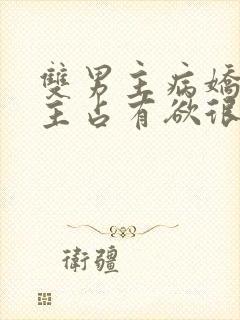 雙男主病嬌
主占有欲很
衛疆